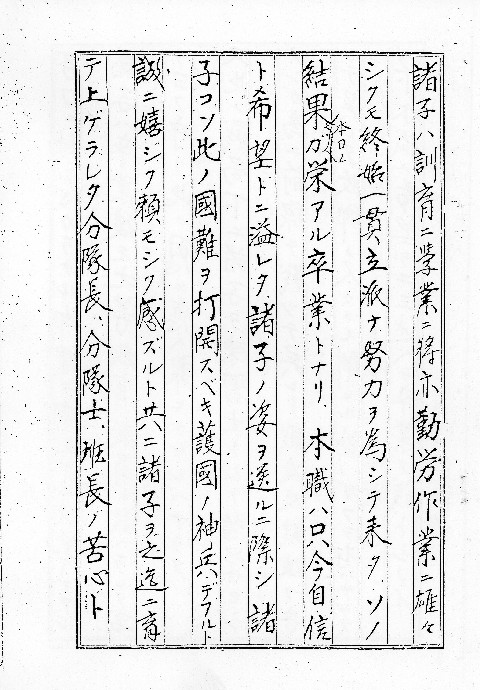 諸子ハ訓育ニ學業ニ將亦勤労作業ニ雄々
シクモ終始一貫、立派ナ努力ヲ為シテ来タソノ
結果ガ本日ノ栄アル卒業トナリ 本職ハ只今自信
ト希望トニ溢レタ諸子ノ姿ヲ送ルニ際シ諸
子コソ此ノ國難ヲ打開スベキ護國ノ神兵デアルト
誠ニ嬉シク頼モシク感ズルト共ニ諸子ヲ之迄ニ育
テ上ゲラレタ分隊長、分隊士、班長ノ苦心ト